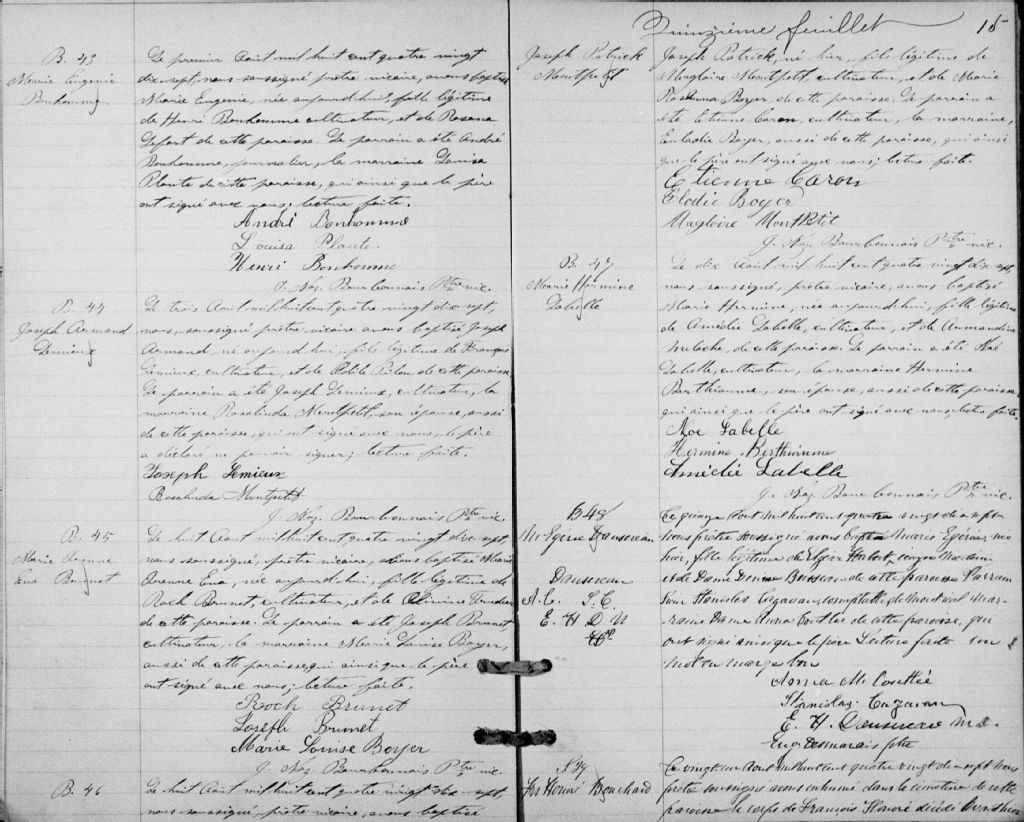 B. 43
Marie Eugenie
Bonhomme
Le premier Aout mil huit cent quatre vingt
dix sept, nous soussigné prêtre vicaire, avons baptisé
Marie Eugenie, née aujourd'hui, fille légitime
de Henri Bonhomme cultivateur, et de Rosana
de cette paroisse. Le parrain a été André
Bonhomme, journalier, la marraine Louisa
Plante de cette paroisse, qui ainsi que le père
ont signé avec nous; lecture faite.
André Bonhomme
Louisa Plante.
Henri Bonhomme
J. Naz. Bourbonnais Ptre vic.
B. 44
Joseph Armand
Lemieux
Le trois Aout mil huit cent quatre vingt dix sept,
nous, soussigné prêtre vicaire avons baptisé Joseph
Armand, né aujourd'hui, fils légitime de François
Lemieux, cultivateur, et de de cette paroisse
Le parrain a été Joseph Lemieux, cultivateur, la
marraine Rosalinda Montpetit, son épouse, aussi
de cette paroisse, qui ont signé avec nous, le père
a déclaré ne pouvoir signer; lecture faite.
Joseph Lemieux
Rosalinda Montpetit
J. Naz. Bourbonnais Ptre vic.
B. 45
Marie
Eva Brunet
Le huit Aout mil huit cent quatre vingt dix sept,
nous soussigné, prêtre vicaire, avons baptisé Marie
Eva, née aujourd'hui, fille légitime de
Roch Brunet, cultivateur, et de
de cette paroisse. Le parrain a été Joseph Brunet,
cultivateur, la marraine Marie Louise Boyer,
aussi de cette paroisse, qui ainsi que le père
ont signé avec nous; lecture faite.
Roch Brunet
Joseph Brunet
Marie Louise Boyer
J. Naz. Bourbonnais Ptre vic.
B. 46
Le huit Aout mil huit cent quatre vingt dix sept,
nous soussigné, prêtre vicaire, avons baptisé
Quinzième feuillet 15
Joseph Patrick
Montpetit
Joseph Patrick, né hier, fils légitime de
Magloire Montpetit, cultivateur, et de Marie
Rosanna Boyer, de cette paroisse. Le parrain a
été Etienne Caron, cultivateur, la marraine,
Boyer, aussi de cette paroisse, qui ainsi
que le père ont signé avec nous; lecture faite.
Etienne Caron
Elodie Boyer
Magloire Montpetit
J. Naz. Bourbonnais Ptre vic.
B. 47
Marie Hermine
Labelle
Le dix Aout mil huit cent quatre vingt dix sept,
nous soussigné, prêtre vicaire, avons baptisé
Marie Hermine, née aujourd'hui, fille légitime
de Amédée Labelle, cultivateur, et de Armandine
Meloche, de cette paroisse. Le parrain a été Noé
Labelle, cultivateur, la marraine Hermine
Berthiaume, son épouse, aussi de cette paroisse
qui ainsi que le père ont signé avec nous, lecture faite.
Noe Labelle
Hermine Berthiaume
Amédée Labelle
J. Naz. Bourbonnais Ptre vic.
B 48
M. Egérie Dausereau
Dausereau
A. C. S. C.
E. H. D. M
Le quinze Aout mil huit cent quatre vingt dix sept
nous prêtre soussigné avons baptisé Marie Egérie, née
hier, fille légitime de Hubert, médecin
et de Dame de cette paroisse Parrain
Stanislas Cazavan, comptable de Montréal mar-
raine Dame Anna de cette paroisse, qui
ont signé ainsi que le père Lecture faite un
mot en marge bon
Anna M. Couttée
Stanislas Cazavan
E. H. Dausereau m.d.
Eug Desmarais ptre
S 34
Frs Honoré Bouchard
Le vingt un Aout mil huit cent quatre vingt dix sept nous
prêtre soussigné avons inhumé dans le cimetière de cette
paroisse le corps de François Honoré décédé avant hier